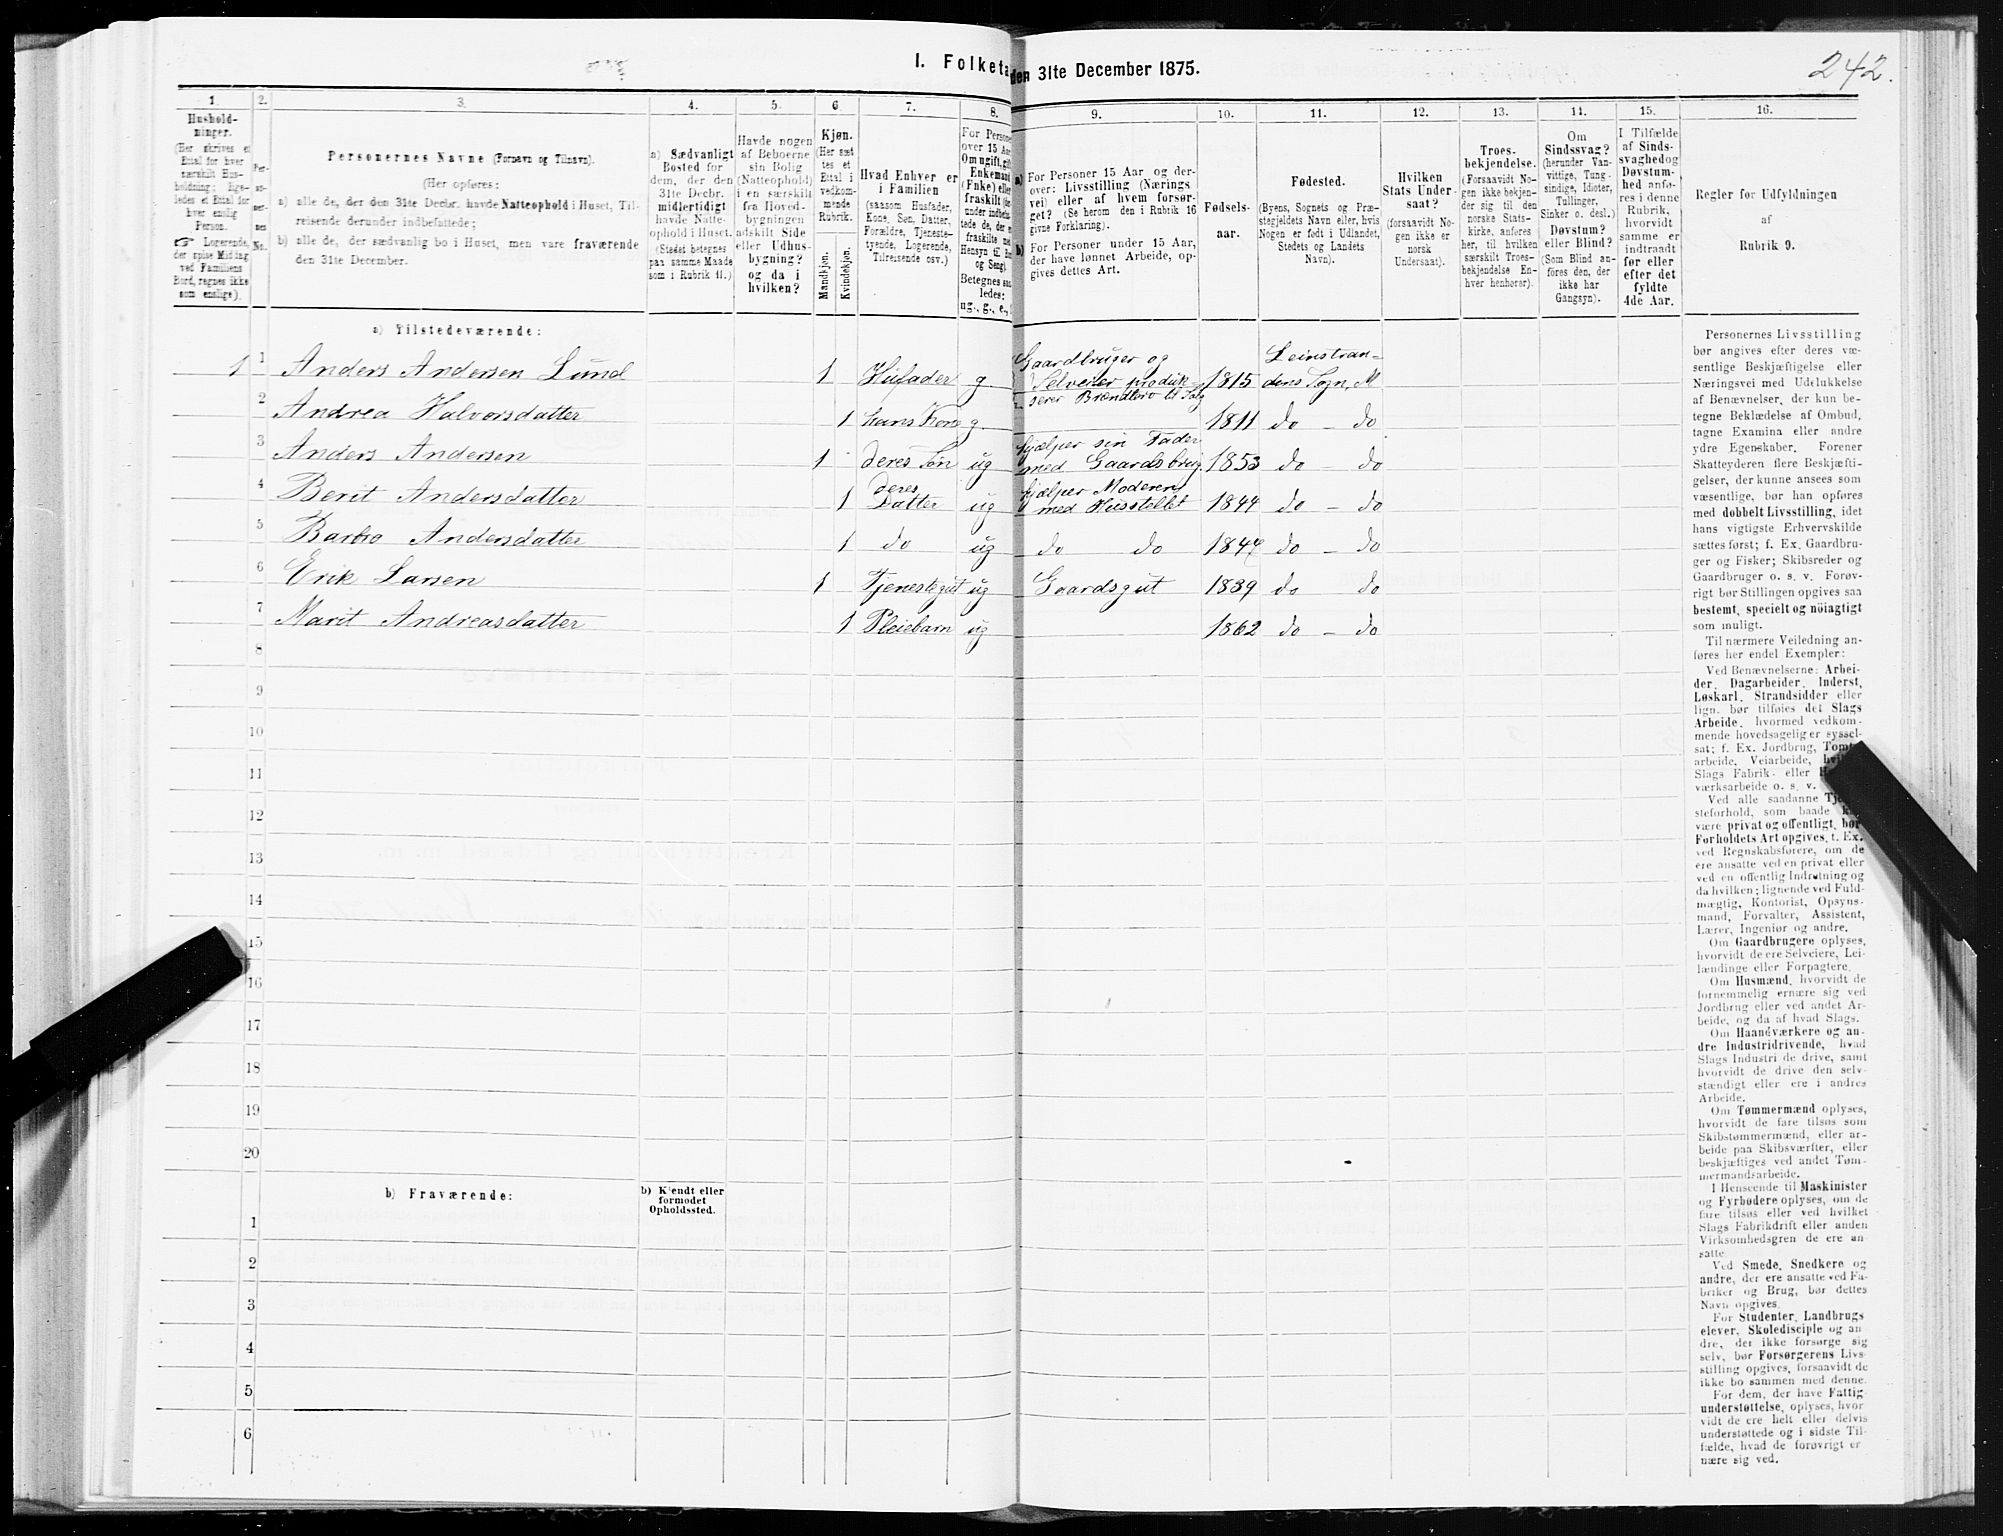 242.
I. Folketa
den 31te December 1875.
1. 2. 3. 4. 5. 6. 7. 8. 9. 10. 11. 12. 13. 14. 15. 16.
Husholdninger.
(Her skrives et
Ettal for hver
særskilt Husholdning; ligeledes et Ettal for
hver enslig
Person.
☞ Logerende,
der spise Middag
ved Familiens
Bord, regnes ikke
som enslige).
Personernes No.
Personernes Navne (Fornavn og Tilnavn).
(Her opføres:
a) alle de, der den 31te Decbr. havde Natteophold i Huset, Tilreisende derunder indbefattede;
b) alle de, der sædvanlig bo i Huset, men vare fraværende
den 31te December.
a) Sædvanligt
Bosted for
dem, der den
31te Decbr.
midlertidigt
havde Natteophold i Huset.
(Stedet betegnes
paa samme Maade
som i Rubrik 11.)
Havde nogen
af Beboerne
sin Bolig
(Natteophold)
i en særskilt
fra Hovedbygningen
adskilt Side
eller Udhusbygning?
og da i
hvilken?
Kjøn.
(Her sæt
tes et
Ettal i
vedkommende
Rubrik.
Mandkjøn.
Kvindekjøn.
Hvad Enhver er
i Familien
(saasom Husfader,
Kone, Søn, Datter,
Forældre, Tjenestetyende, Logerende,
Tilreisende osv.)
For Persone
over 15 Aar
Om ugift, gift
Enkemand
(Enke) elle
fraskilt
under indbe
tede de, der e
fraskilte
Hensyn til Bo
og Seng).
Betegnes saa
ledes:
ug., g., e.,
a) For Personer 15 Aar og derover: Livsstilling (Nærings
vei) eller af hvem forsørget? (Se herom den i Rubrik 16
givne Forklaring).
b) For Personer under 15 Aar,
der have lønnet Arbeide, opgives dettes Art.
Fødselsaar.
Fødested.
(Byens, Sognets og Præstegjeldets Navn eller, hvis
Nogen er født i Udlandet,
Stedets og Landets
Navn).
Hvilken
Stats Undersaat?
(forsaavidt Nogen ikke er
norsk
Undersaat).
Troesbekjendelse.
(Forsaavidt Nogen ikke bekjender sig til den
norske Statskirke, anføres
her, til hvilken
særskilt Troesbekjendelse Enhver henhører).
Om
Sindssvag?
(herunder Vanvittige, Tungsindige, Idioter,
Tullinger,
Sinker o. desl.)
Døvstum?
eller Blind?
(Som Blind anføres den, der
ikke har
Gangsyn).
I Tilfælde
af Sindssvaghed og
Døvstumhed anføres i denne
Rubrik,
hvorvidt
samme er
indtraadt
før eller
efter det
fyldte
4de Aar.
Regler for Udfyldningen
af
Rubrik 9.
a) Tilstedeværende:
1 1 Anders Andersen Lund 1 Husfader g. Gaardbruger og Selveier produkserer Brændtorv til Salg 1815 Leinstrandens Sogn, M
2 Andrea Halvorsdatter 1 hans Kone g. 1811 do - do
3 Anders Andersen 1 deres Søn ug hjælper sin Fader med Gaardsbrug 1853 do - do
4 Berit Andersdatter 1 deres Datter ug hjælper Moderen med Husstellet 1844 do - do
5 Barbro Andersdatter 1 do ug do do 1847 do - do
6 Erik Larsen 1 Tjenestegut ug Gaardsgut 1839 do do
7 Marit Andreasdatter 1 Pleiebarn ug 1862 do - do
8
9
10
11
12
13
14
15
16
17
18
19
20
b) Fraværende:
b) Kjendt eller
formodet
Opholdssted.
1
2
3
4
5
6
Personernes Livsstilling
bør angives efter deres væsentlige Beskjæftigelse eller
Næringsvei med Udelukkelse
af Benævnelser, der kun betegne Beklædelse af Ombud,
tagne Examina eller andre
ydre Egenskaber. Forener
Skatteyderen flere Beskjæftigelser, der kunne ansees som
væsentlige, bør han opføres
med dobbelt Livsstilling, idet
hans vigtigste Erhvervskilde
sættes først; f. Ex. Gaardbruger og Fisker; Skibsreder og
Gaardbruger o. s. v. Forøvrigt bør Stillingen opgives saa
bestemt, specielt og nöiagtigt
som muligt.
Til nærmere Veiledning anføres her endel Exempler:
Ved Benævnelserne: Arbeider, Dagarbeider, Inderst,
Løskarl, Strandsidder eller
lign. bør tilføies det Slags
Arbeide, hvormed vedkommende hovedsagelig er sysselsat; f. Ex. Jordbrug, Tomtearbeide, Veiarbeide,
Slags Fabrik- eller
værksarbeide o. s. v.
Ved alle saadanne
steforhold, som baade
være privat og offentligt, bør
Forholdets Art opgives, t. Ex.
ved Regnskabsførere, om de
ere ansatte ved en privat eller
ved en offentlig Indretning og
da hvilken; lignende ved Fuldmægtig, Kontorist, Opsynsmand, Forvalter, Assistent,
Lærer, Ingeniør og andre.
Om Gaardbrugere oplyses,
hvorvidt de ere Selveiere, Leilændinge eller Forpagtere.
Om Husmænd, hvorvidt de
fornemmelig ernære sig ved
Jordbrug eller ved andet Arbeide, og da af hvad Slags.
Om Haandværkere og andre Industridrivende, hvad
Slags Industri de drive, samt
hvorvidt de drive den selvstændigt eller ere i andres
Arbeide.
Om Tømmermænd oplyses,
hvorvidt de fare tilsøs som
Skibstømmermænd, eller arbeide paa Skibsværfter, eller
beskjæftiges ved andet Tømmermandsarbeide.
I Henseende til Maskinister
og Fyrbødere oplyses, om de
fare tilsøs eller ved hvilket
Slags Fabrikdrift eller anden
Virksomhedsgren de ere ansatte.
Ved Smede, Snedkere og
andre, der ere ansatte ved Fabriker og Brug, bør dettes
Navn opgives.
For Studenter, Landbrugs
elever, Skoledisciple og andre, der ikke forsørge sig
selv, bør Forsørgerens Livsstilling opgives, forsaavidt de
ikke bo sammen med denne.
For dem, der have Fattigunderstøttelse, oplyses, hvorvidt de ere helt eller delvis
understøttede og i sidste Tilfælde, hvad de forøvrigt ernære sig ved.